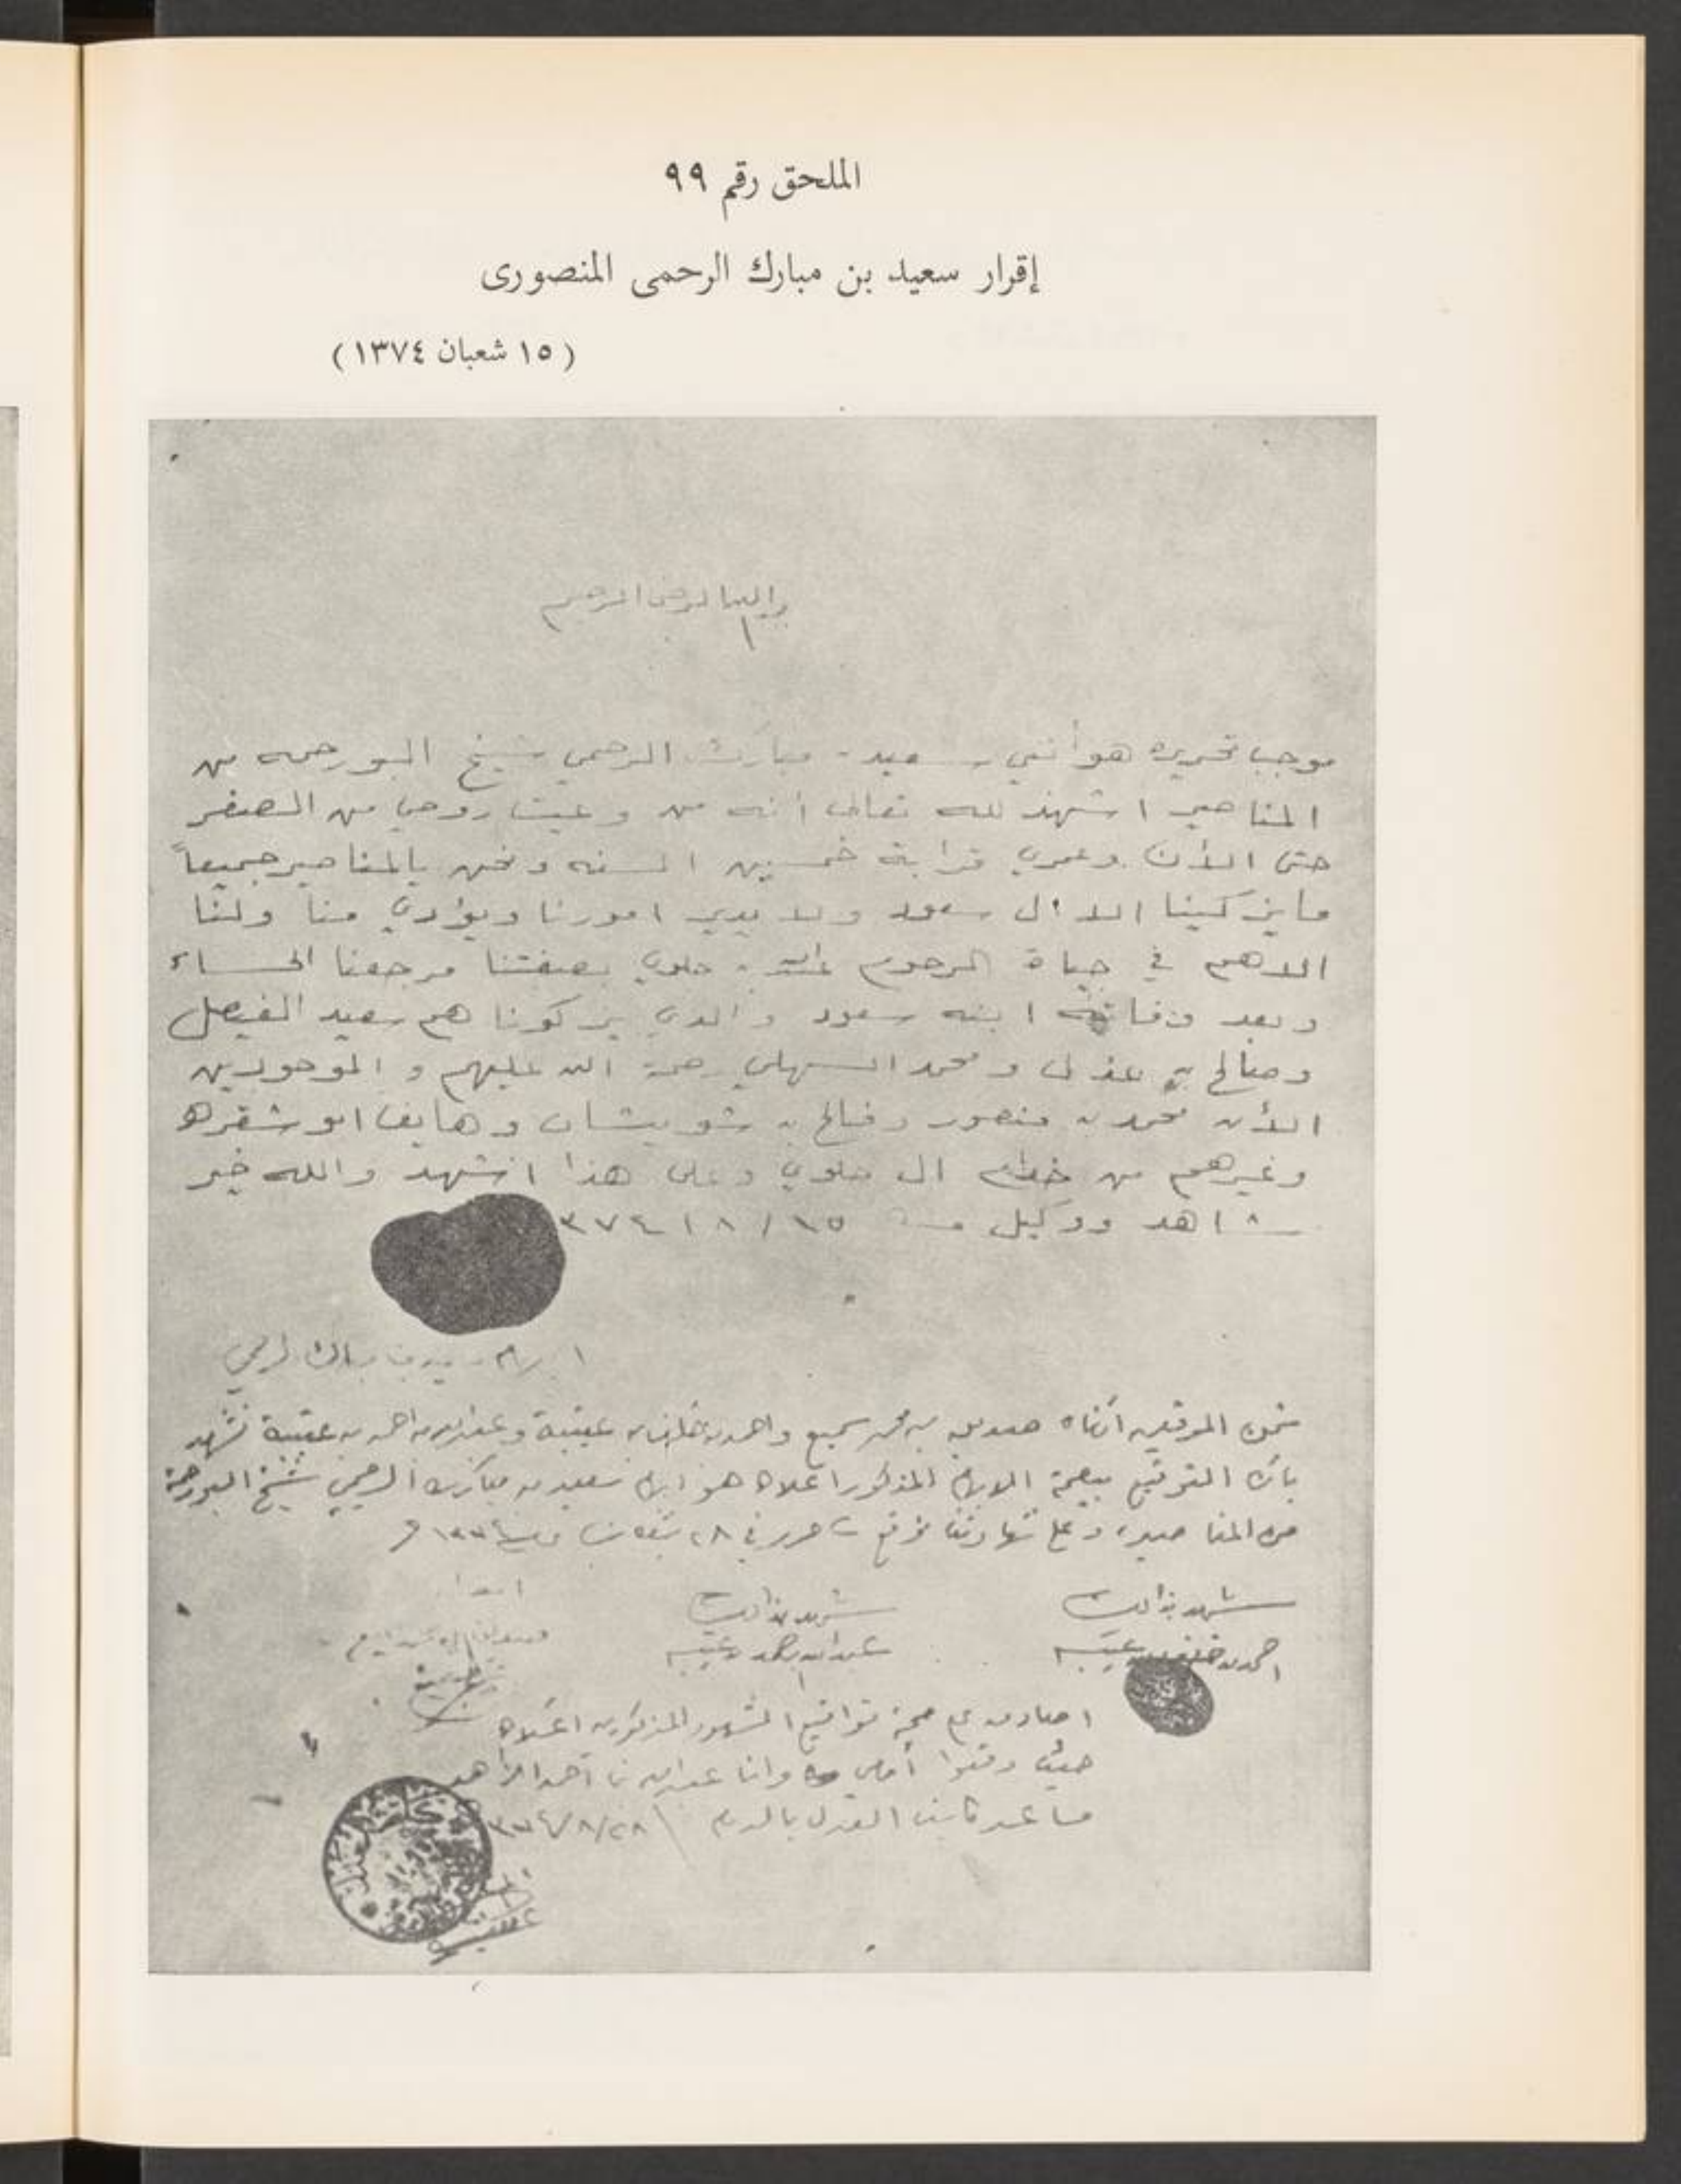 الملحق رقم ٩٩
إقرار سعيد بن مبارك الرحمى المنصورى
(١٥ شعبان ١٣٧٤)
بسم الله الرحمن الرحيم
موجب تحريره هو أنني سعيد بن مبارك الرحمي شيخ البورحمه من
المناصير اشهد لله تعالى أنه من وعيت روحي من الصغر
حتى الأن وعمري قرابة خمسين السنه ونحن يالمناصير جميعاً
مايزكينا الا ال سعود ولا يدير امورنا ويؤدي منا ولنا
الا هم في حياة المرحوم عبدالله بن جلوي بصفتنا مرجعنا الحساء
وبعد وفاته ابنه سعود والذي يزكونا هم سعيد الفيصل
وصالح بن عذل ومحمد السهلي رحمة الله عليهم و الموجودين
الأن محمد بن منصور وفالح بن شويشان وهايف ابو شقره
وغيرهم من خدام ال جلوي وعلى هذا اشهد والله خير
شاهد ووكيل ١٥/٨/١٣٧٤
سعيد بن مبارك الرحمي
نحن الموقعين ادناه بن محمد سميع واحمد بن خلفان عتيبة وعبدالله بن احمد بن عتيبة نشهد
بأن التوقيع ببصمة الابهام المذكور اعلاه هو ابهام سعيد بن مبارك الرحمي شيخ البورحمة
من المناصير وعلى شهادتنا نوقع حرر في ٢٨ شعبان سنة ١٣٧٤ هـ
شهد بذالك
احمد بن خلفان عتيبه
شهد بذالك
عبدالله بن احمد بن عتيبه
اصادق على صحة تواقيع الشهود المذكورين اعلاه
حيث وقعوا أمامي وانا عبدالله بن احمد
مساعد كاتب العدل بالدمام ٢٨/٨/١٣٧٤